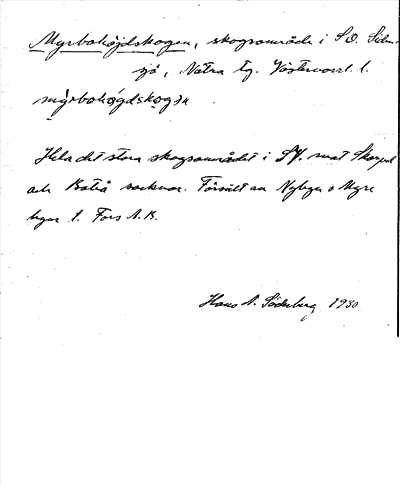 Myrbohöjdskogen, skogsområde i S.O. Siden-
sjö, Nätra tg. Västernorrl. l.
myrbohögdskogən
Hela det stora skogsområdet i SV. mot Skorped
och socknar. Försålt av Nybyn o Myre
byar t. Fors A.B.
Hans A. Söderberg 1930